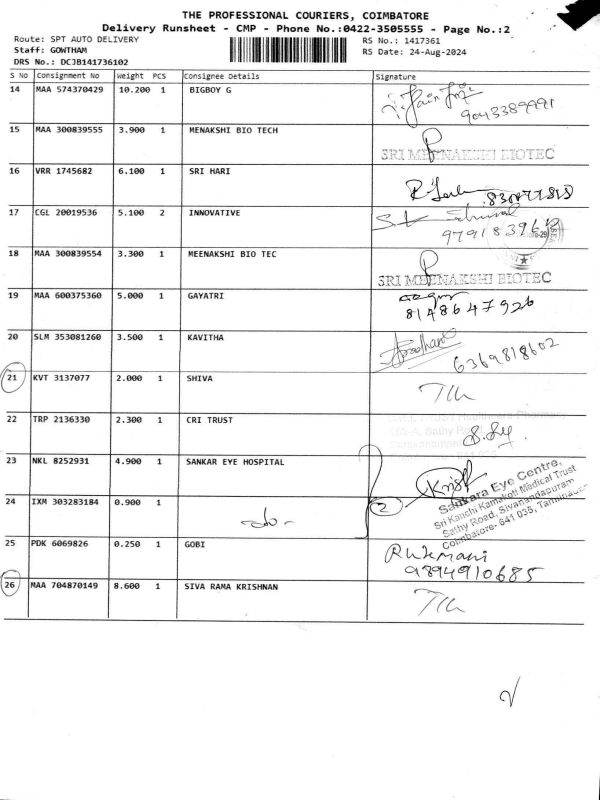 THE PROFESSIONAL COURIERS, COIMBATORE
Delivery Runsheet - CMP - Phone No.:0422-3505555 - Page No.:2
Route: SPT AUTO DELIVERY
RS No.: 1417361
Staff: GOWTHAM
RS Date: 24-Aug-2024
DRS No.: DCJB141736102
S No Consignment No Weight PCS Consignee Details Signature
14 MAA 574370429 10.200 1 BIGBOY G
9043389991
15 MAA 300839555 3.900 1 MENAKSHI BIO TECH
SRI MEENAKSHI BIOTEC
16 VRR 1745682 6.100 1 SRI HARI
17 CGL 20019536 5.100 2 INNOVATIVE
18 MAA 300839554 3.300 1 MEENAKSHI BIO TEC
SRI MEENAKSHI BIOTEC
19 MAA 600375360 5.000 1 GAYATRI
8148647926
20 SLM 353081260 3.500 1 KAVITHA
6369818602
21 KVT 3137077 2.000 1 SHIVA
22 TRP 2136330 2.300 1 CRI TRUST
23 NKL 8252931 4.900 1 SANKAR EYE HOSPITAL
2
Sankara Eye Centre,
Sri Kanchi Kamakoti Medical Trust
Sathy Road, Sivanandapuram
Coimbatore- 641 035, Tamilnadu
24 IXM 303283184 0.900 1 -do-
25 PDK 6069826 0.250 1 GOBI
Rukmani
9894910685
26 MAA 704870149 8.600 1 SIVA RAMA KRISHNAN